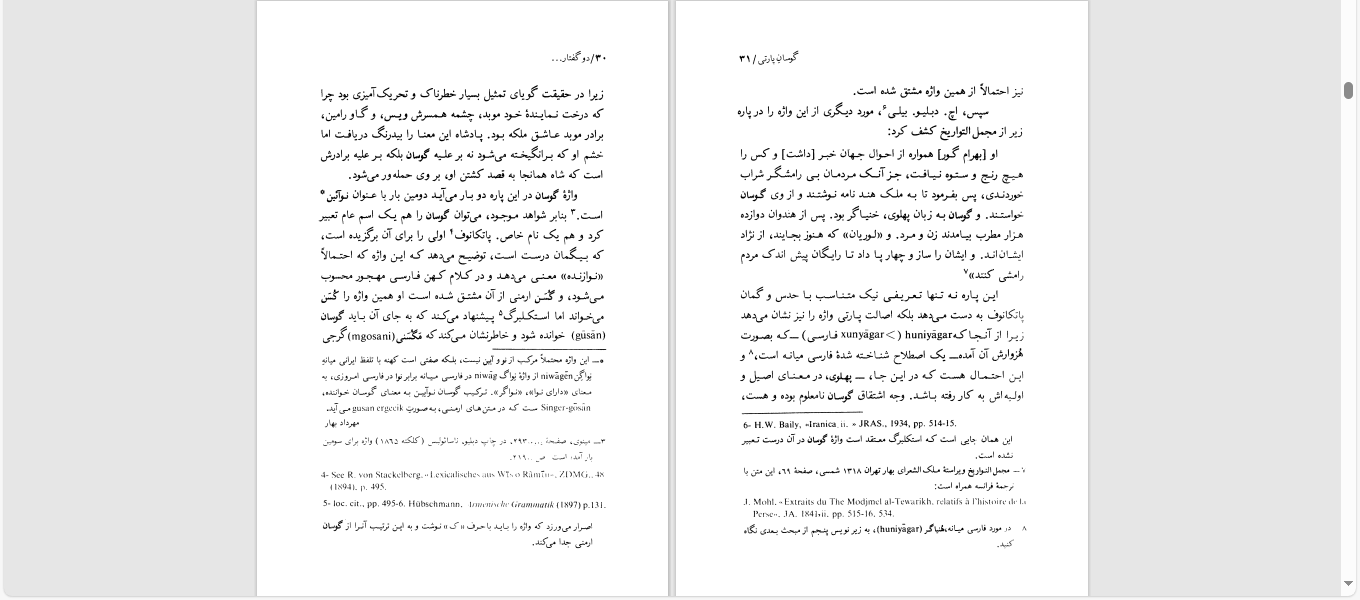 ۳۰/دو گفتار...
زیرا در حقیقت گویای تمثیل بسیار خطرناک و تحریک‌آمیزی بود چرا
که درخت نمایندهٔ خود موبد، چشمه همسرش ویس، و گاو رامین،
برادر موبد عاشق ملکه بود. پادشاه این معنا را بیدرنگ دریافت اما
خشم او که برانگیخته می‌شود نه بر علیه گوسان بلکه بر علیه برادرش
است که شاه همانجا به قصد کشتن او، بر وی حمله‌ور می‌شود.
واژهٔ گوسان در این پاره دو بار می‌آید دومین بار با عنوان نوآئین*
است.۳ بنابر شواهد موجود، می‌توان گوسان را هم یک اسم عام تعبیر
کرد و هم یک نام خاص. پاتکانوف۴ اولی را برای آن برگزیده است،
که بیگمان درست است، توضیح می‌دهد که این واژه که احتمالاً
«نوازنده» معنی می‌دهد و در کلام کهن فارسی مهجور محسوب
می‌شود، و گُسَن ارمنی از آن مشتق شده است او همین واژه را گُسَن
می‌خواند اما استکلبرگ۵ پیشنهاد می‌کند که به جای آن باید گوسان
(gūsān) خوانده شود و خاطرنشان می‌کند که مگُسَنی(mgosani) گرجی
*— این واژه محتملاً مرکب از نو و آیین نیست، بلکه صفتی است کهنه با تلفظ ایرانی میانهٔ
نِواگِن niwāgēn از واژهٔ نِواگ niwāg در فارسی میانه برابر نوا در فارسی امروزی، به
معنای «دارای نوا»، «نواگر». ترکیب گوسان نوآیین به معنای گوسان خواننده،
Singer-gōsān است که در متن‌های ارمنی، به‌صورت gusan ergecik می‌آید.
مهرداد بهار
۳— مینوی، صفحهٔ ۲۹۳، در چاپ دبلیو. ناسائولیس (کلکته ۱۸۶۵) واژه برای سومین
بار آمده است ص ۲۱۹
4- See R. von Stackelberg, «Lexicalisches aus Wīs o Rāmīn», ZDMG., 48
(1894), p. 495.
5- loc. cit., pp. 495-6. Hübschmann, Armenische Grammatik (1897) p.131.
اصرار می‌ورزد که واژه را باید با حرف «ک» نوشت و به این ترتیب آنرا از گوسان
ارمنی جدا می‌کند.
گوسان پارتی/۳۱
نیز احتمالاً از همین واژه مشتق شده است.
سپس، اچ. دبلیو. بیلی۶، مورد دیگری از این واژه را در پاره
زیر از مجمل‌التواریخ کشف کرد:
او [بهرام گور] همواره از احوال جهان خبر [داشت] و کس را
هیچ رنج و ستوه نیافت، جز آنک مردمان بی رامشگر شراب
خوردندی، پس بفرمود تا به ملک هند نامه نوشتند و از وی گوسان
خواستند. و گوسان به زبان پهلوی، خنیاگر بود. پس از هندوان دوازده
هزار مطرب بیامدند زن و مرد. و «لوریان» که هنوز بجایند، از نژاد
ایشان‌اند. و ایشان را ساز و چهار پا داد تا رایگان پیش اندک مردم
رامشی کنند»۷
این پاره نه تنها تعریفی نیک متناسب با حدس و گمان
پاتکانوف به دست می‌دهد بلکه اصالت پارتی واژه را نیز نشان می‌دهد
زیرا از آنجا که huniyāgar (>xunyāgar فارسی) —که بصورت
هُزوارش آن آمده— یک اصطلاح شناخته شدهٔ فارسی میانه است،۸ و
این احتمال هست که در این جا، — پهلوی، در معنای اصیل و
اولیه‌اش به کار رفته باشد. وجه اشتقاق گوسان نامعلوم بوده و هست،
6- H.W. Baily, «Iranica, ii. » JRAS., 1934, pp. 514-15.
این همان جایی است که استکلبرگ معتقد است واژهٔ گوسان در آن درست تعبیر
نشده است.
۷— مجمل‌التواریخ ویراستهٔ ملک‌الشعرای بهار تهران ۱۳۱۸ شمسی، صفحهٔ ۶۹، این متن با
ترجمهٔ فرانسه همراه است:
J. Mohl, «Extraits du The Modjmel al-Tewarikh, relatifs à l'histoire de la
Perse», JA. 1841,ii, pp. 515-16, 534.
۸ در مورد فارسی میانه، هُنیاگر (huniyāgar)، به زیر نویس پنجم از مبحث بعدی نگاه
کنید.